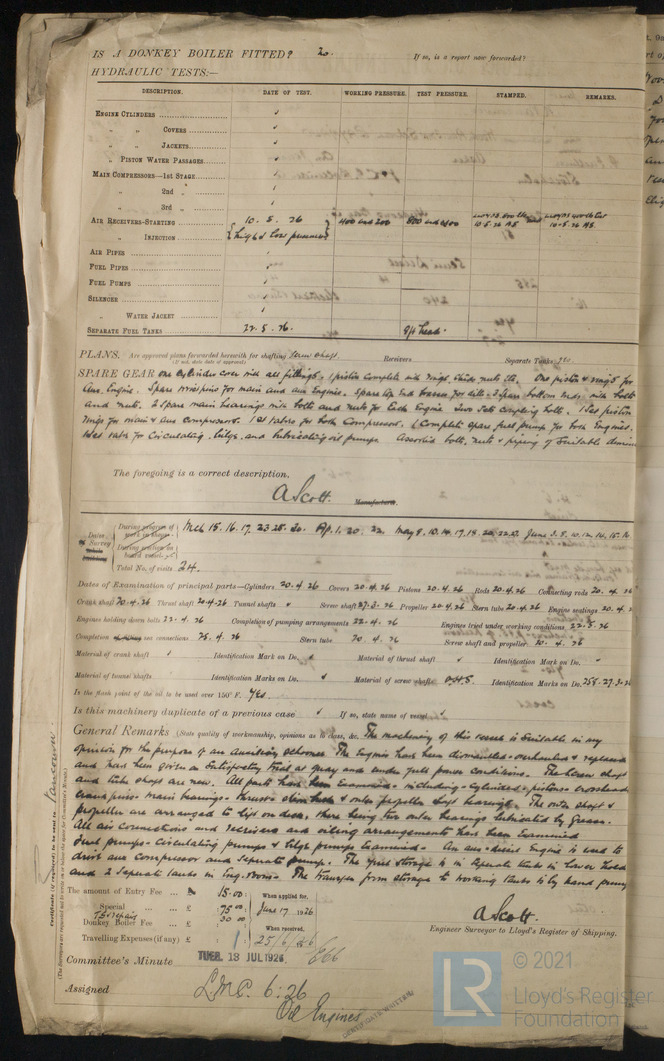 IS A DONKEY BOILER FITTED? no. If so, is a report now forwarded?
HYDRAULIC TESTS:—
DESCRIPTION. DATE OF TEST. WORKING PRESSURE. TEST PRESSURE. STAMPED. REMARKS.
ENGINE CYLINDERS
" " COVERS
" " JACKETS
" PISTON WATER PASSAGES
MAIN COMPRESSORS—1st STAGE
" 2nd "
" 3rd "
AIR RECEIVERS—STARTING 10.5.26 400 and 200
" INJECTION { high & low pressure } 10.5.26 AS. 10-5.26 AS.
AIR PIPES
FUEL PIPES
FUEL PUMPS
SILENCER
" WATER JACKET
SEPARATE FUEL TANKS 22.5.26. head.
PLANS. Are approved plans forwarded herewith for shafting Receivers Separate Tanks
(If not, state date of approval)
SPARE GEAR One Cylinder cover with all fittings. 1 piston complete with rings, studs nuts etc. One piston & rings for
Aux. Engine. Spare for main and aux Engine. Spare top End for ditto. 2 Spare bottom ends with bolts
and nuts. 2 Spare main bearings with bolts and nuts for Each Engine Two Sets coupling bolts. 1 Set piston
rings for main & Aux Compressors. 1 set valves for both Compressors. 1 Complete spare fuel pump for both Engines.
1 set valves for Circulating, bilge, and lubricating oil pumps Assorted bolts, nuts & piping of Suitable
The foregoing is a correct description,
A Scott. Manufacturer.
Dates of Survey while building
During progress of work in shops - - Mch 15. 16. 17. 23. 25. 30. Ap. 1. 20. 22. May 8. 10. 14. 17. 18. 20. 22. June 3. 8. 10. 12. 14. 15. 16
During erection on board vessel - -
Total No. of visits 24.
Dates of Examination of principal parts—Cylinders 20.4.26 Covers 20.4.26 Pistons 20.4.26 Rods 20.4.26 Connecting rods 20.4.26
Crank shaft 20.4.26 Thrust shaft 20.4.26 Tunnel shafts Screw shaft 27.3.26 Propeller 20.4.26 Stern tube 20.4.26 Engine seatings 20.4.2
Engines holding down bolts 22.4.26 Completion of pumping arrangements 22.4.26 Engines tried under working conditions 22.5.26
Completion sea connections 25.4.26 Stern tube 20.4.26 Screw shaft and propeller 20.4.26
Material of crank shaft Identification Mark on Do. Material of thrust shaft Identification Mark on Do.
Material of tunnel shafts Identification Marks on Do. Material of screw shafts O.H.S. Identification Marks on Do. 258.27.3.26
Is the flash point of the oil to be used over 150° F. Yes
Is this machinery duplicate of a previous case If so, state name of vessel
General Remarks (State quality of workmanship, opinions as to class, &c. The machinery of this vessel is Suitable in my
opinion for the purpose of an Auxiliary Schooner The Engines have been dismantled - overhauled & replaced
and has been given a Satisfactory trial at quay and under full power conditions. The screw shaft
and tube shaft are new. All parts have been Examined - including - Cylinders - pistons - crosshead
crank pins - main bearings - thrust - & outer propeller shaft bearings. The outer shaft &
propeller are arranged to lift on deck, there being two outer bearings lubricated by Grease.
All air connections and receivers and oiling arrangements have been Examined
Fuel pumps - Circulating pumps & bilge pumps Examined - An aux - Engine is used to
drive aux compressor and seperate pump. The fuel storage is in Seperate tanks in lower hold
and 2 Seperate tanks in Eng. room. The transfer from storage to working tanks is by hand pump
The amount of Entry Fee ... £ 15.00 When applied for,
Special ... £ 75.00 June 17 1926
Donkey Boiler Fee ... £ 30.00 When received,
Travelling Expenses (if any) £ 25/6/26
A Scott.
Engineer Surveyor to Lloyd's Register of Shipping.
Committee's Minute TUES. 13 JUL 1926
Assigned L.M.C. 6:26
Oil Engines
CERTIFICATE WRITTEN
Certificate (if required) to be sent to Vancouver
(The Surveyors are requested not to write on or below the space for Committee's Minute.)
LR © 2021
Lloyd's Register
Foundation